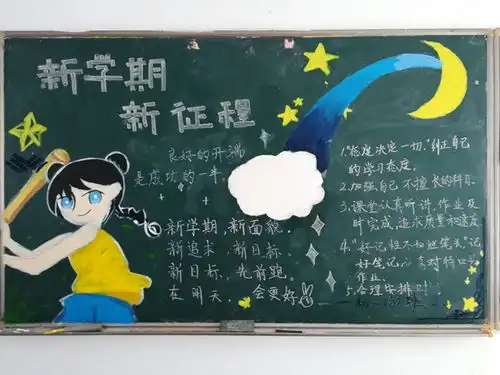 新学期
新征程
良好的开端
是成功的一半。
新学期,新面貌。
新追求,新目标。
新目标,先前跑。
在明天,会更好
1."态度决定一切."纠正自己
的学习态度.
2.加强自己不擅长的科目.
3.课堂认真听讲.作业及
时完成.追求质量和速度
4."好记性不如烂笔头"记
好笔记
作业.
5.合理安排时